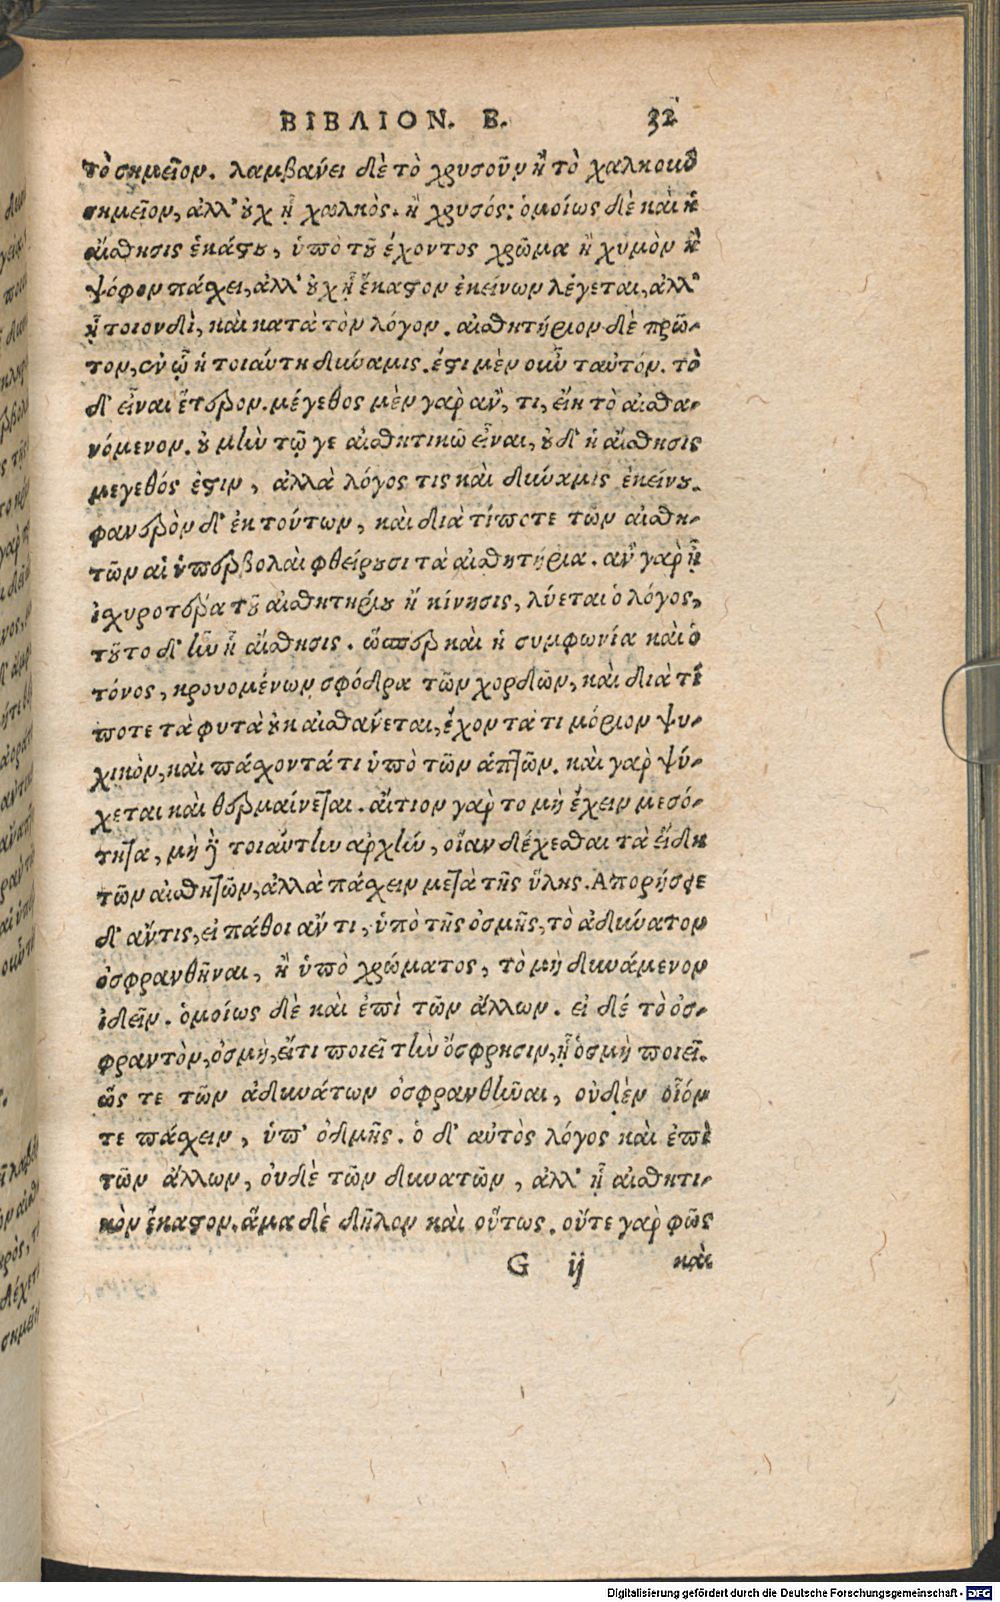 ΒΙΒΛΙΟΝ. Β. 32
τὸ σημεῖον. λαμβάνει δὲ τὸ χρυσοῦν ἢ τὸ χαλκοῦν
σημεῖον, ἀλλ' οὐχ ᾗ χαλκὸς. ἢ χρυσός: ὁμοίως δὲ καὶ ἡ
αἴσθησις ἑκάστου, ὑπὸ τοῦ ἔχοντος χρῶμα ἢ χυμὸν ἢ
ψόφον πάσχει, ἀλλ' οὐχ ᾗ ἕκαστον ἐκείνων λέγεται, ἀλλ'
ᾗ τοιονδὶ, καὶ κατὰ τὸν λόγον. αἰσθητήριον δὲ πρῶ-
τον, ἐν ᾧ ἡ τοιαύτη δύναμις. ἔστι μὲν οὖν ταὐτόν. τὸ
δ' εἶναι ἕτερον. μέγεθος μὲν γὰρ ἂν, τι, εἴη τὸ αἰσθα-
νόμενον. οὐ μὴν τῷ γε αἰσθητικῷ εἶναι, οὐδ' ἡ αἴσθησις
μεγεθός ἐστιν, ἀλλὰ λόγος τις καὶ δύναμις ἐκείνου.
φανερὸν δ' ἐκ τούτων, καὶ διὰ τί ποτε τῶν αἰσθη-
τῶν αἱ ὑπερβολαὶ φθείρουσι τὰ αἰσθητήρια. ἂν γὰρ ᾖ
ἰσχυροτέρα τοῦ αἰσθητηρίου ἡ κίνησις, λύεται ὁ λόγος,
τοῦτο δ' ἦν ἡ αἴσθησις. ὥσπερ καὶ ἡ συμφωνία καὶ ὁ
τόνος, κρουομένων σφόδρα τῶν χορδῶν, καὶ διὰ τί
ποτε τὰ φυτὰ οὐκ αἰσθάνεται, ἔχον τὰ τι μόριον ψυ-
χικὸν, καὶ πάσχοντά τι ὑπὸ τῶν ἁπτῶν. καὶ γὰρ ψύ-
χεται καὶ θερμαίνεται. αἴτιον γὰρ το μὴ ἔχειν μεσό-
τητα, μὴ δὲ τοιαύτην ἀρχὴν, οἵαν δέχεσθαι τὰ εἴδη
τῶν αἰσθητῶν, ἀλλὰ πάσχειν μετὰ τῆς ὕλης. Ἀπορήσειε
δ' ἄν τις, εἰ πάθοι ἄν τι, ὑπὸ τῆς ὀσμῆς, τὸ ἀδύνατον
ὀσφρανθῆναι, ἢ ὑπὸ χρώματος, τὸ μὴ δυνάμενον
ἰδεῖν. ὁμοίως δὲ καὶ ἐπὶ τῶν ἄλλων. εἰ δέ τὸ ὀσ-
φραντὸν, ὀσμή, εἴτι ποιεῖ τὴν ὄσφρησιν, ἡ ὀσμὴ ποιεῖ.
ὥς τε τῶν ἀδυνάτων ὀσφρανθῆναι, οὐδὲν οἷόν
τε πάσχειν, ὑπ' ὀδμῆς. ὁ δ' αὐτὸς λόγος καὶ ἐπὶ
τῶν ἄλλων, οὐδὲ τῶν δυνατῶν, ἀλλ' ᾗ αἰσθητι-
κὸν ἕκαστον. ἅμα δὲ δῆλον καὶ οὕτως. οὔτε γὰρ φῶς
G ij καὶ
Digitalisierung gefördert durch die Deutsche Forschungsgemeinschaft - DFG